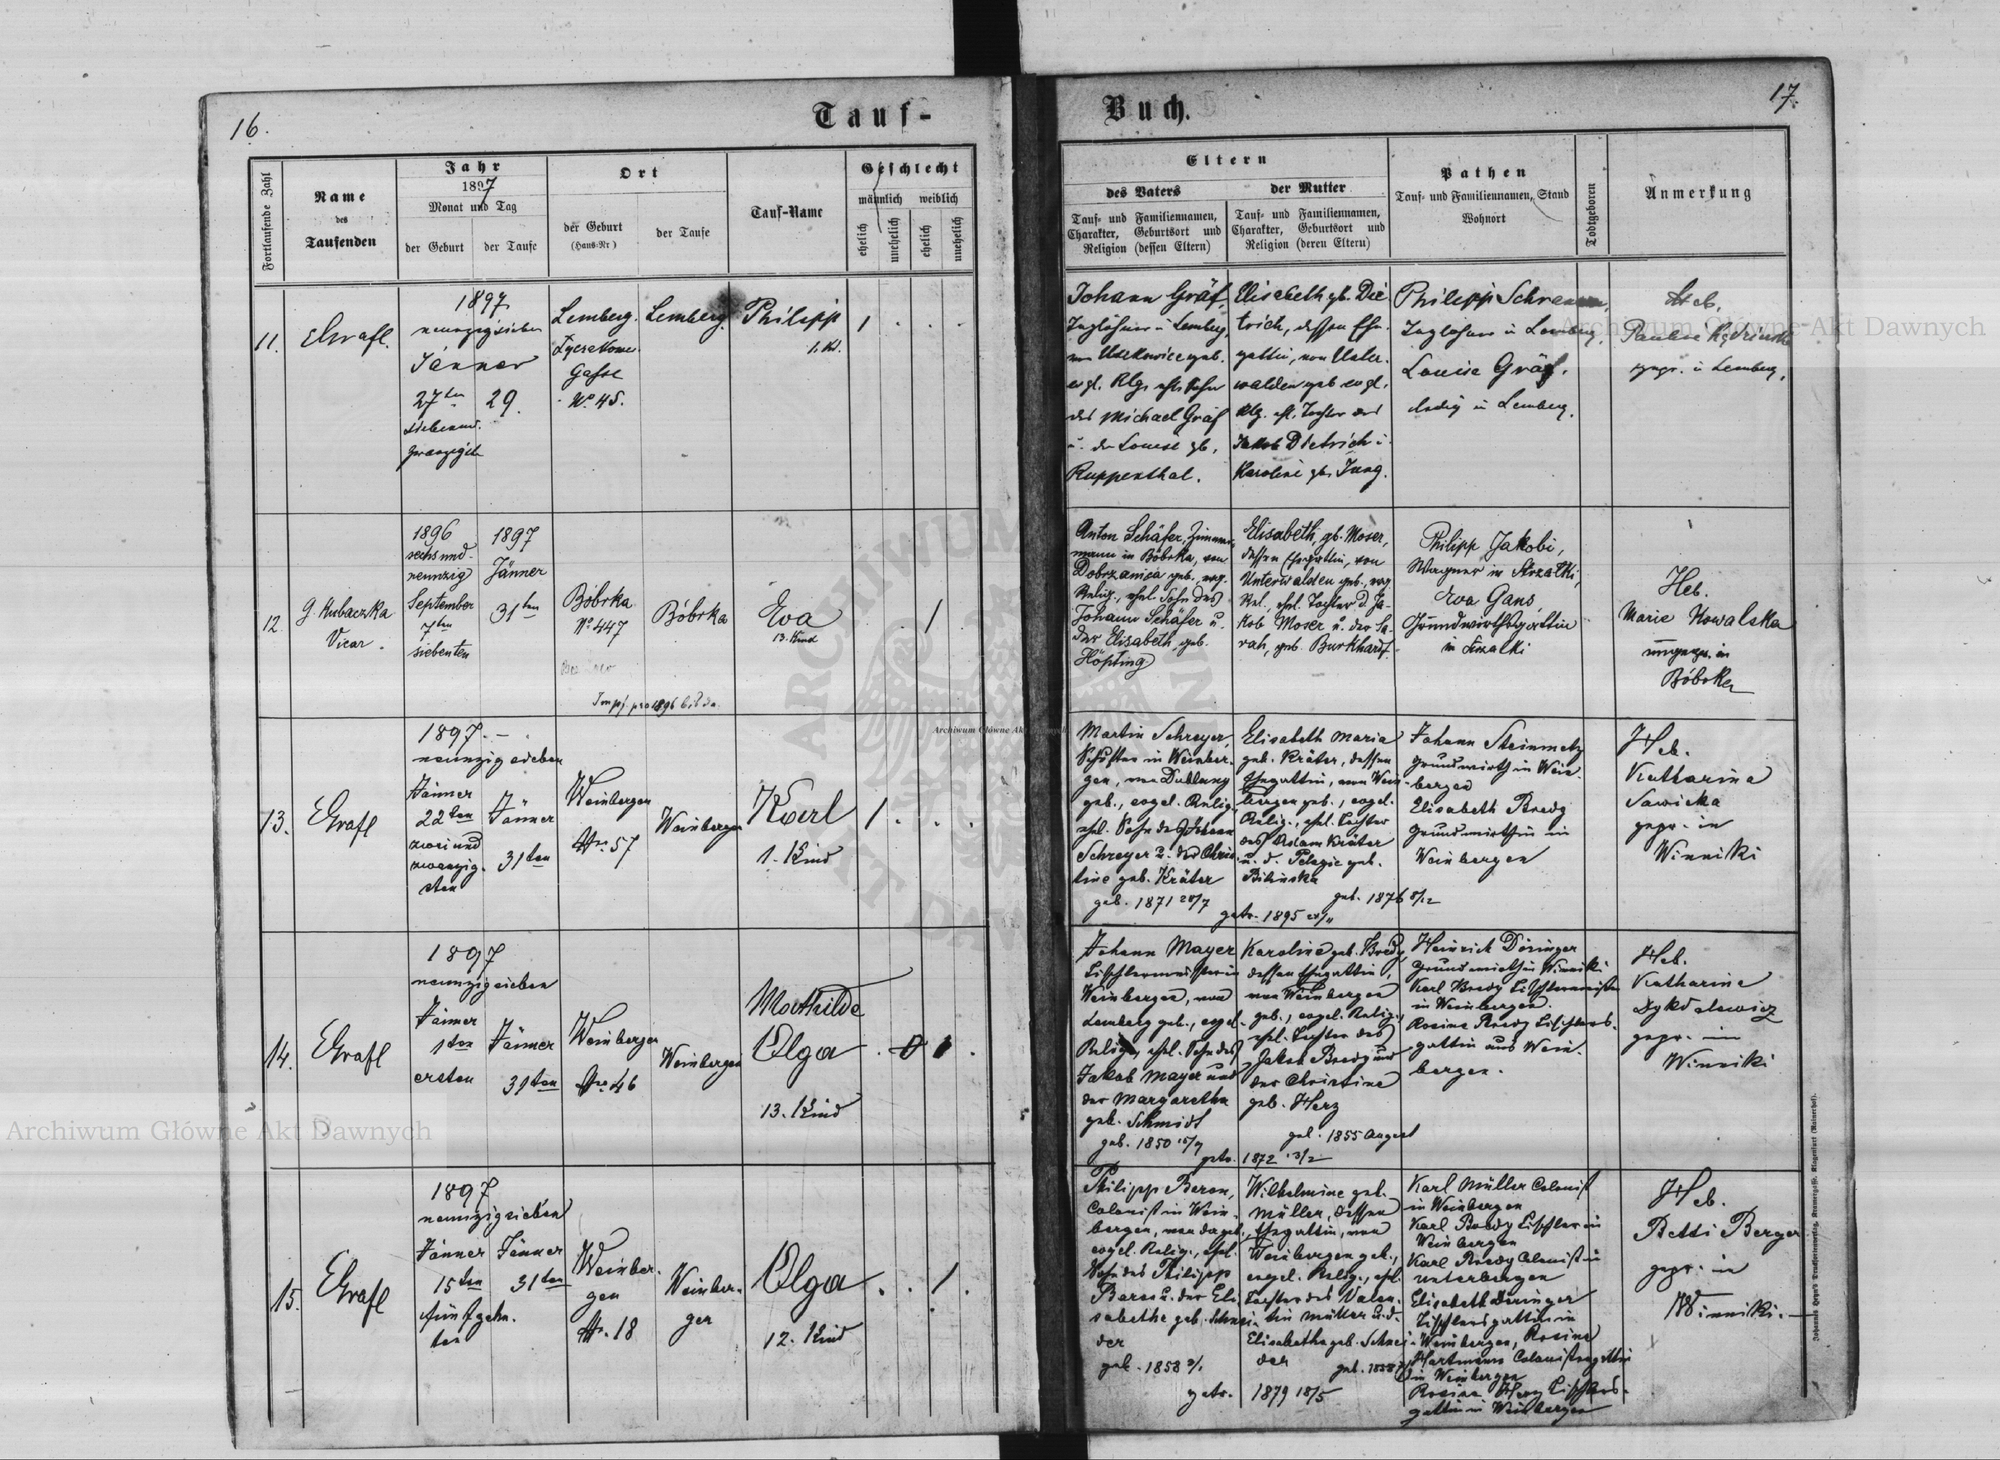 16.
Tauf-
Fortlaufende Zahl
Name
des
Taufenden
Jahr
1897
Monat und Tag
der Geburt
der Taufe
Ort
der Geburt
(Haus-Nr)
der Taufe
Tauf-Name
Geschlecht
männlich
weiblich
ehelich
unehelich
ehelich
unehelich
11.
Grafl.
1897
neunzigsieben
Jänner
27ten
29.
Lemberg.
Gasse
No 45.
Lemberg.
Philipp
1. Kd.
1
12.
G. Kubaczka
Vicar.
1896
sechs und
neunzig
September
7ten
siebenten
1897
Jänner
31ten
Bóbrka
No 447
Bóbrka
Eva
13. Kind
1
13.
Grafl
1897. -
neunzigsieben
Jänner
22ten
zwei und
zwanzig-
sten
Jänner
31ten
Weinbergen
Nro 57
Weinbergen
Karl
1. Kind
1
14.
Grafl
1897
neunzigsieben
Jänner
1ten
ersten
Jänner
31ten
Weinbergen
Nro 46
Weinbergen
Mathilde
Olga
13. Kind
1
15.
Grafl
1897
neunzigsieben
Jänner
15ten
fünfzehn-
ten
Jänner
31ten
Weinber-
gen
Nr. 18
Weinber-
gen
Olga
12. Kind
1
Buch.
17.
Eltern
des Vaters
Tauf- und Familiennamen,
Charakter, Geburtsort und
Religion (dessen Eltern)
der Mutter
Tauf- und Familiennamen,
Charakter, Geburtsort und
Religion (deren Eltern)
Pathen
Tauf- und Familiennamen, Stand
Wohnort
Todtgeboren
Anmerkung
Johann Gräf,
Taglöhner in Lemberg,
evgl. Rlg. ehl. Sohn
des Michael Gräf
u. der Louise gb.
Ruppenthal.
Elisabeth gb. Die-
trich, dessen Ehe-
gattin, von Unter-
walden geb. evgl.
Rlg. ehl. Tochter des
Jakob Dietrich u.
Karoline gb. Jung.
Philipp
Taglöhner in Lemberg.
Louise Gräf,
ledig in Lemberg.
Heb.
Pauline
gepr. in Lemberg.
Anton Schäfer, Zimmer-
mann in Bóbrka, von
Dobrzanica geb., evg.
Relig., ehel. Sohn des
Johann Schäfer u.
der Elisabeth, geb.
Höpting
Elisabeth, gb. Moser,
dessen Ehegattin, von
Unterwalden geb., evg.
Rel., ehel. Tochter d. Ja-
kob Moser u. der Sa-
rah, geb. Burkhardt.
Philipp Jakobi,
Wagner in Strzałki,
Eva Gans,
Grundwirthsgattin
in Strzałki
Heb.
Marie Kowalska
ungepr. in
Bóbrka
Martin Schreyer,
Schuster in Weinber-
gen, von Dublany
geb., evgel. Relig.,
ehel. Sohn des Johann
Schreyer u. der Chris-
tine geb. Kräter
geb. 1871 28/7
Elisabeth Maria
geb. Kräter, dessen
Ehegattin, von Wein-
bergen geb., evgel.
Relig., ehel. Tochter
des Adam Kräter
u. d. Pelagie geb.
Bilinska
geb. 1876 8/12
getr. 1895 24/11
Johann Steinmetz
Grundwirth in Wein-
bergen
Elisabeth Bredy
Grundwirthin in
Weinbergen
Heb.
Katharina
Sawicka
gepr. in
Winniki
Johann Mayer
Tischlermeister in
Weinbergen, von
Lemberg geb., evgel.
Relig., ehel. Sohn des
Jakob Mayer und
der Margaretha
geb. Schmidt
geb. 1850 15/9
Karoline geb. Bredy
dessen Ehegattin,
von Weinbergen
geb., evgel. Relig.,
ehel. Tochter des
Jakob Bredy und
der Christine
geb. Herz
geb. 1855 August
getr. 1872 13/2
Heinrich Döringer
Grundwirth in Winniki
Karl Bredy Tischlermeister
in Weinbergen.
Rosina Bredy Tischlers-
gattin aus Wein-
bergen.
Heb.
Katharina
gepr. in
Winniki
Philipp Beron,
Colonist in Wein-
bergen, von da geb.,
evgel. Relig., ehel.
Sohn des Philipp
Beron u. der Eli-
sabethe geb. Schnei-
der
Wilhelmine geb.
Müller, dessen
Ehegattin, von
Weinbergen geb.,
evgel. Relig., ehel.
Tochter des Valen-
tin Müller u. d.
Elisabethe geb. Schnei-
der
getr. 1879 18/5
Karl Müller Colonist
in Weinbergen
Karl Bredy Tischler in
Weinbergen
Karl Bredy Colonist in
Unterbergen
Elisabeth Döringer
Tischlersgattin in
Weinbergen, Rosina
Hartmann Colonistengattin
in Weinbergen
Rosina Herz Tischlers-
gattin in Weinbergen
Heb.
Betti Berger
gepr. in
Winniki. -
Archiwum Główne Akt Dawnych
Archiwum Główne Akt Dawnych
Archiwum Główne Akt Dawnych